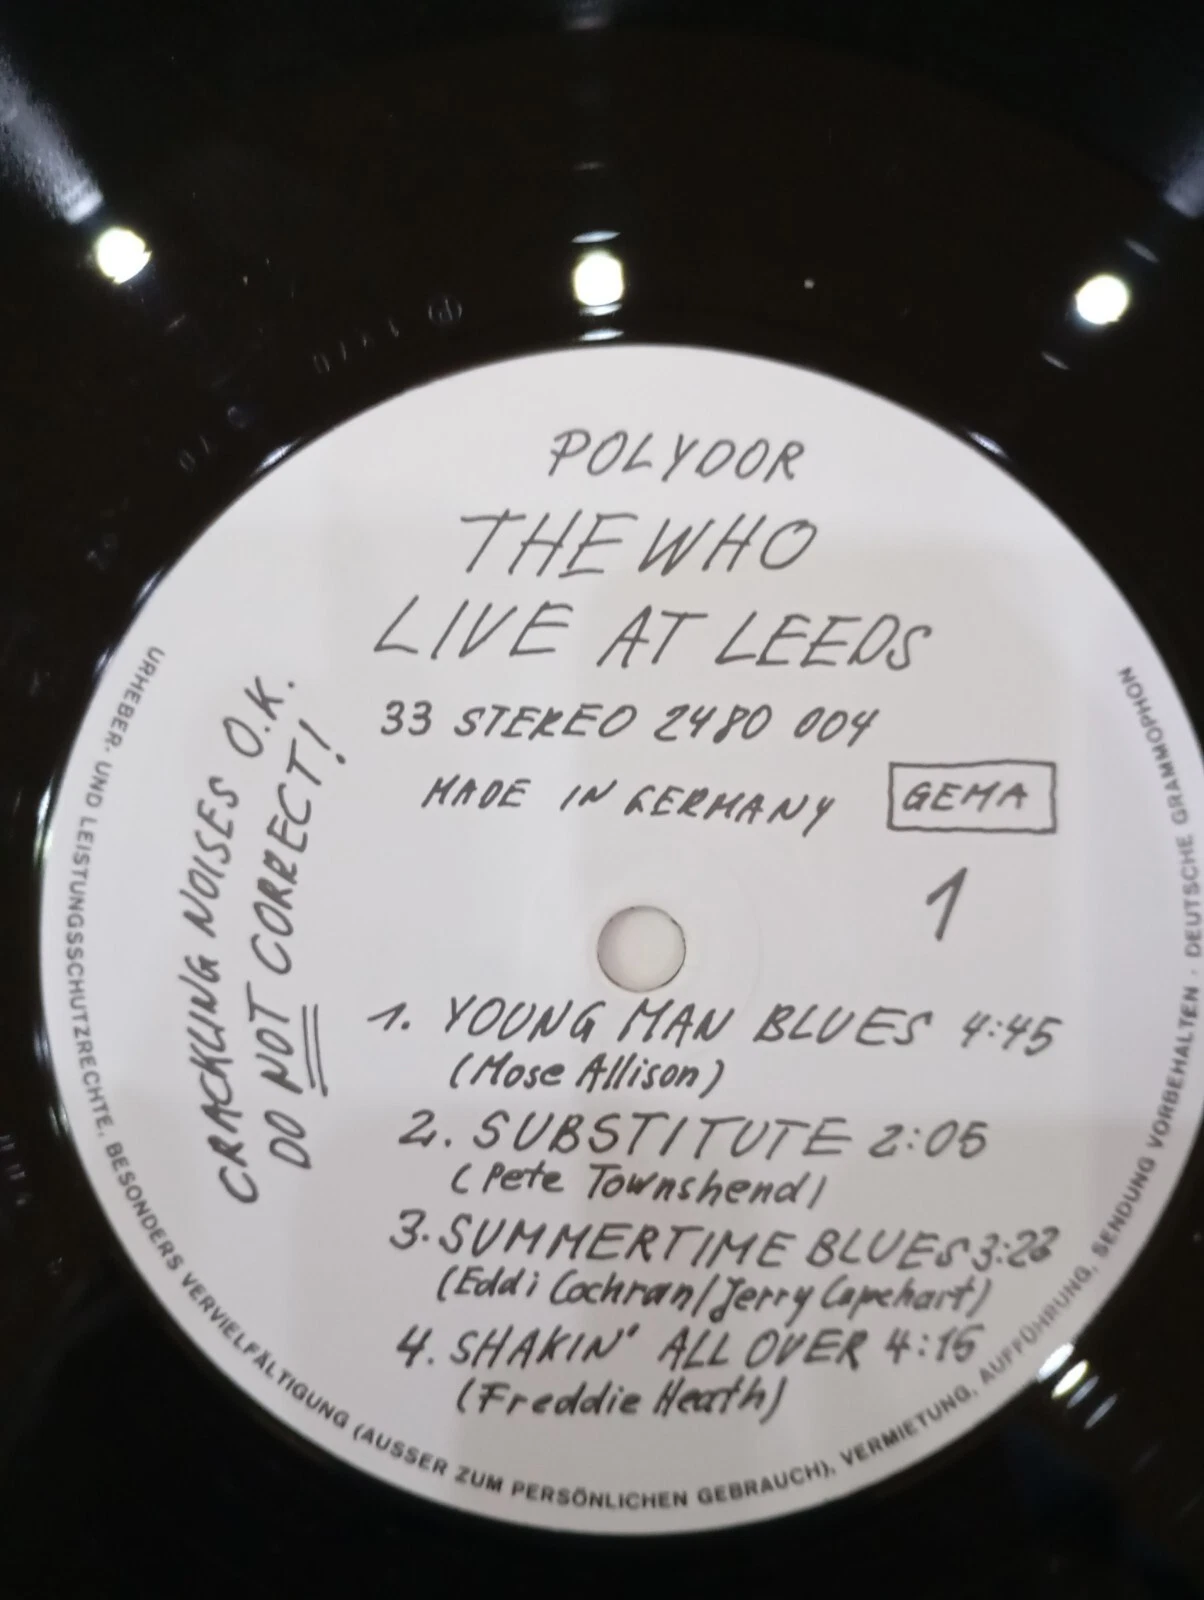 POLYDOR
THE WHO
LIVE AT LEEDS
33 STEREO 2480 004
MADE IN GERMANY
GEMA
1
CRACKLING NOISES O.K.
DO NOT CORRECT!
1. YOUNG MAN BLUES 4:45
(Mose Allison)
2. SUBSTITUTE 2:05
(Pete Townshend)
3. SUMMERTIME BLUES 3:23
(Eddi Cochran/Jerry Capehart)
4. SHAKIN' ALL OVER 4:15
(Freddie Heath)
URHEBER- UND LEISTUNGSSCHUTZRECHTE, BESONDERS VERVIELFÄLTIGUNG (AUSSER ZUM PERSÖNLICHEN GEBRAUCH), VERMIETUNG, AUFFÜHRUNG, SENDUNG VORBEHALTEN · DEUTSCHE GRAMMOPHON